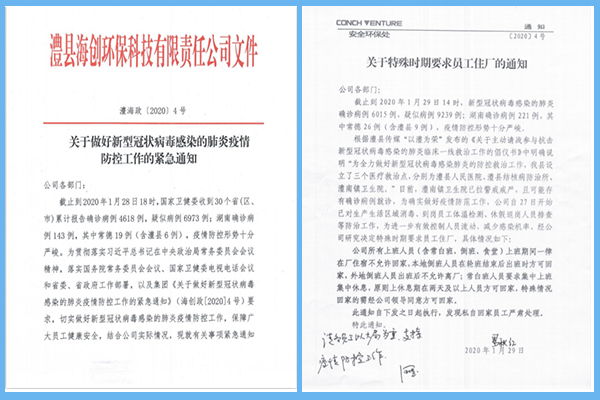 澧县海创环保科技有限责任公司文件
澧海政〔2020〕4号
关于做好新型冠状病毒感染的肺炎疫情
防控工作的紧急通知
公司各部门：
截止到2020年1月28日18时，国家卫健委收到30个省(区、
市)累计报告确诊病例4618例，疑似病例6973例；湖南确诊病
例143例，其中常德19例（澧县6例），疫情防控形势十分严
峻。为贯彻落实习近平总书记在中央政治局常务委员会会议
精神，落实国务院常务委员会会议、国家卫健委电视电话会议
和省委、省政府工作部署，以及集团《关于做好新型冠状病毒
感染的肺炎疫情防控工作的紧急通知》(海创政[2020]4号)要
求，切实做好新型冠状病毒感染的肺炎疫情防控工作，保障广
大员工健康安全，结合公司实际情况，现就有关事项紧急通知
CONCH VENTURE
通 知
安全环保处
〔2020〕4号
关于特殊时期要求员工住厂的通知
公司各部门：
截止到2020年1月29日14时，新型冠状病毒感染的肺炎
确诊病例6015例，疑似病例9239例；湖南确诊病例221例，其
中常德26例(含澧县9例)，疫情防控形势十分严峻。
根据澧县传媒“以澧为荣”发布的《关于主动请战参与抗击
新型冠状病毒感染的肺炎临床一线救治工作的倡仪书》中明确说
明“为全力做好新型冠状病毒感染肺炎的防控救治工作，我县设
立了三个医疗救治点，分别为澧县人民医院、澧县结核病防治所、
澧南镇卫生院。”目前，澧南镇卫生院已拉警戒戒严，且可能存
有确诊病例救治，为确实做好疫情防范工作，公司自27日开始
已对生产生活区域消毒、到岗员工体温检测、休假返岗人员排查
等防治工作，为进一步有效控制人员流动、减少感染机率，经公
司研究决定特殊时期要求员工住厂，具体情况如下：
公司所有上班人员（含常白班、倒班、食堂）上班期间一律
在厂住宿不允许回家，本地倒班人员在轮班结束后出班时方可回
家，外地倒班人员出班后不允许离厂；常白班人员要求集中上班
集中休息，原则上休息期在两天及以上人员方可回家，特殊情况
回家的需经公司领导同意方可回家。
此通知自下发之日起执行，发现私自回家员工严肃处理。
特此通知。
疫情防控工作。
2020年1月29日